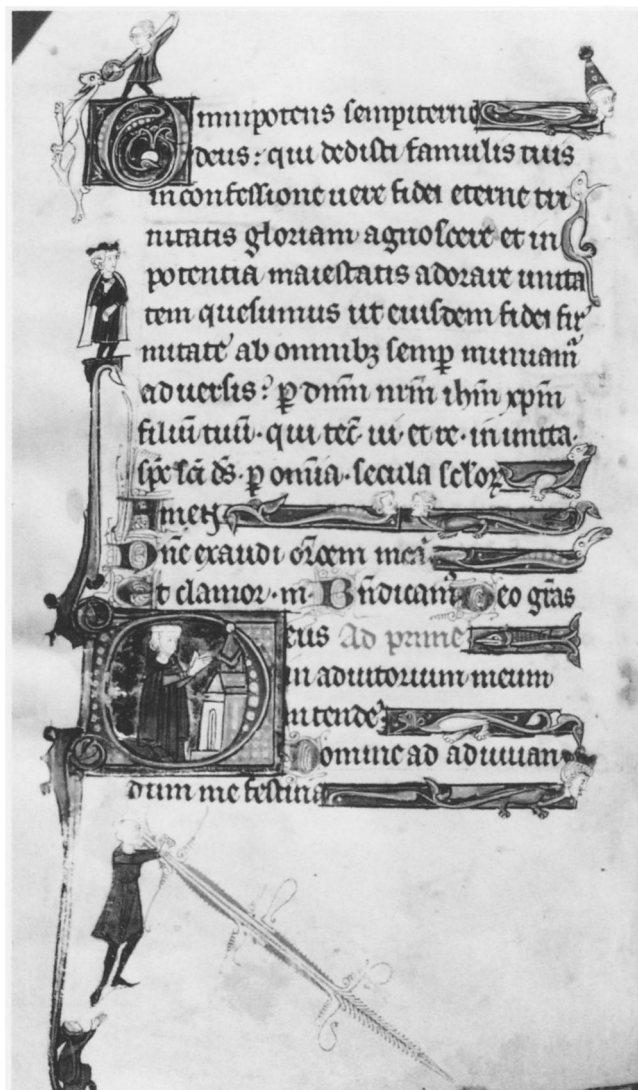 Omnipotens sempiterne
deus: qui dedisti famulis tuis
in confessione uere fidei eterne tri
nitatis gloriam agnoscere et in
potentia maiestatis adorare unita
tem quesumus ut eiusdem fidei fir
mitate ab omnibꝫ semꝑ muniam̃
aduersis: ꝑ dnm̃ nrm̃ ihm̃ xp̃m
filiũ tuũ. qui tec̃ ui. et re. in unita.
sp̃c sc̃i ds̃. ꝑ om̃ia. secula sclõꝝ
Amen
Dñe exaudi or̃oem meã
Et clamor. m. Bñdicam̃ Deo gr̃as
Deus Ad prime
in adiutorium meum
intende
Domine ad adiuuan
dum me festina